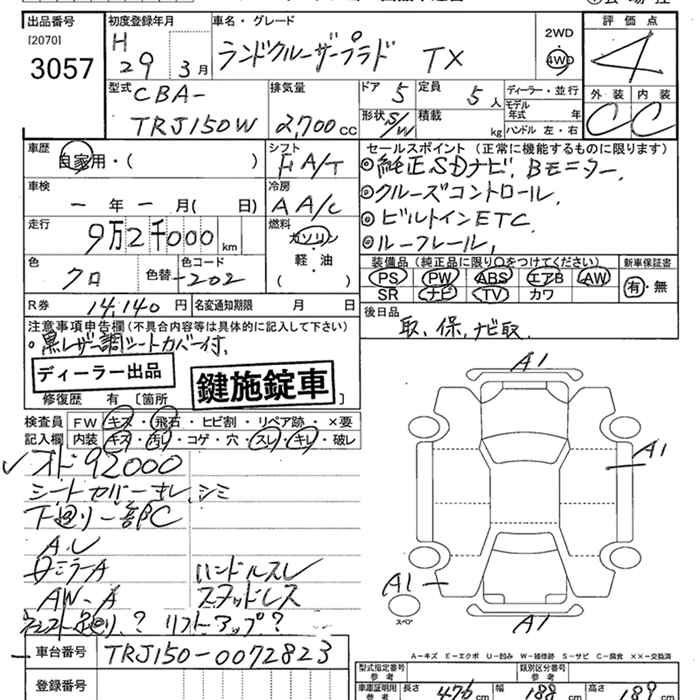 出品番号 初度登録年月 車名・グレード 評価点
[2070]
3057
H 29 3月 ランドクルーザープラド TX 2WD 4WD 4
型式 排気量 ドア 定員 ディーラー・並行 外装 内装
CBA- 5 5人 モデル年式 年 C C
TRJ150W 2,700cc 形状 S/W 積載 kg ハンドル 左・右
車歴 シフト セールスポイント (正常に機能するものに限ります)
自家用・( ) F A/T ◎純正SDナビ. Bモニター.
車検 冷房 ◎クルーズコントロール.
― 年 ― 月( 日) A A/C ◎ビルトインETC.
走行 燃料 ◎ルーフレール,
9万2千000km ガソリン・軽・油 ( )
装備品 (純正品に限り○をつけてください) 新車保証書
色 色替 色コード PS PW ABS エアB AW 有・無
クロ -202 SR ナビ TV カワ
R券 14,140円 名変通知期限 月 日 後日品
取、保、ナビ取
注意事項申告欄(不具合内容等は具体的に記入して下さい)
・黒レザー調シートカバー付.
ディーラー出品
鍵施錠車
修復歴 有 [箇所
検査員記入欄 FW キズ・飛石・ヒビ割・リペア跡・×要
内装 キズ・汚レ・コゲ・穴・スレ・キレ・破レ
✓オド92000
シートカバーキレ,シミ
下廻り一部C
A.U
ミラーA ハンドルスレ
AW-A スタッドレス
リフトアップ?
A1
A1
A1
A1
スペア
A-キズ E-エクボ U-凹み W-補修跡 S-サビ C-腐食 ××-交換済
車台番号 TRJ150-0072823
型式指定番号 参考 類別区分番号 参考
登録番号
車庫証明用 参考 長さ 476cm 幅 188cm 高さ 189cm